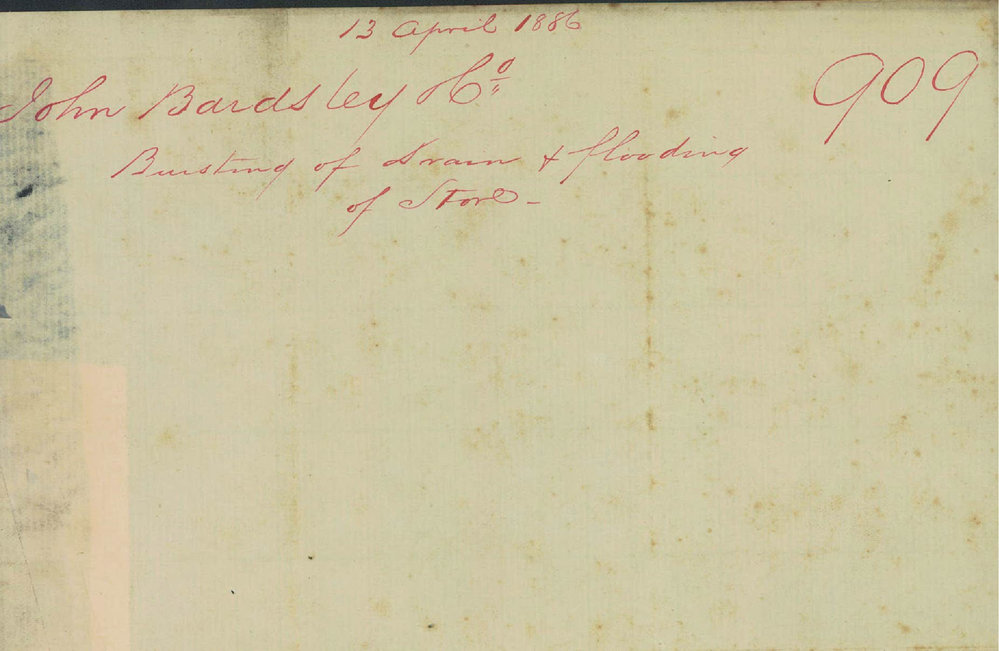 13 April 1886
John Bardsley & Co
909
Bursting of drain & flooding
of Store -